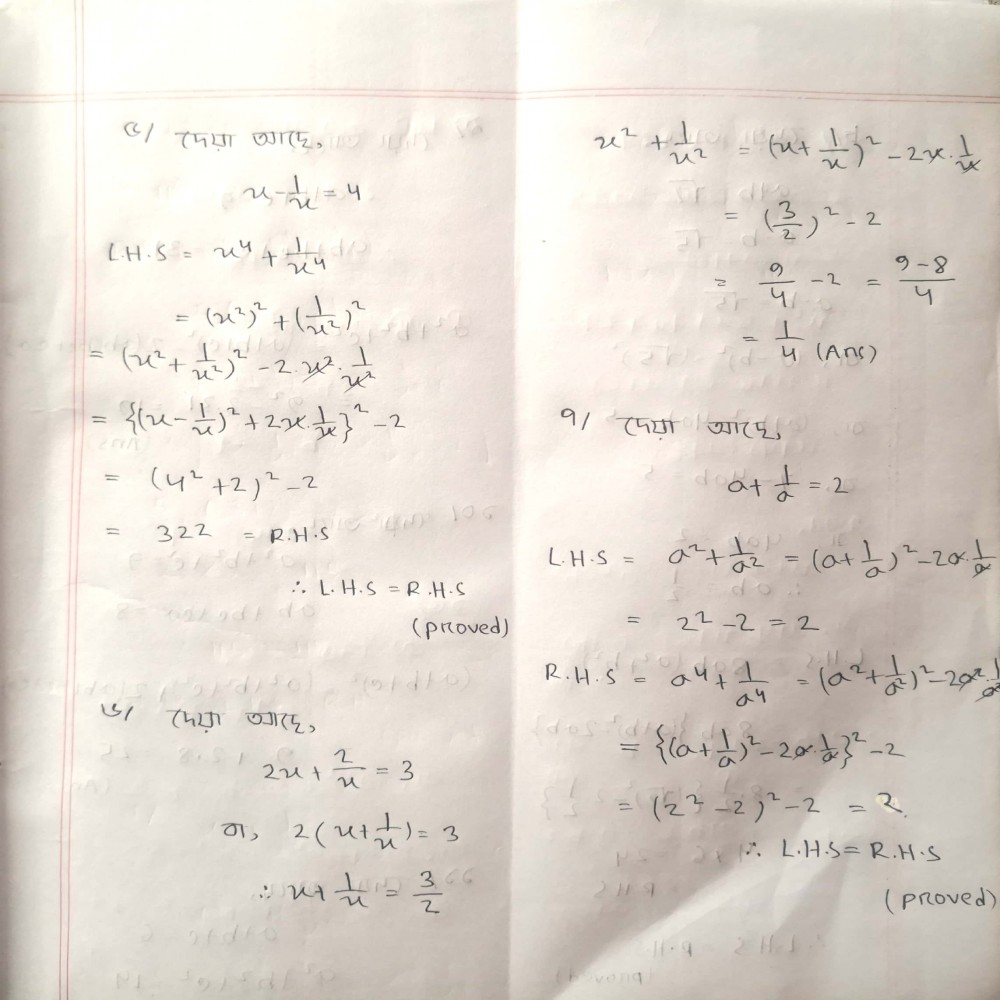 ৫/ দেয়া আছে,
x - 1/x = 4
L.H.S = x⁴ + 1/x⁴
= (x²)² + (1/x²)²
= (x² + 1/x²)² - 2.x².1/x²
= {(x - 1/x)² + 2x.1/x}² - 2
= (4² + 2)² - 2
= 322 = R.H.S
∴ L.H.S = R.H.S
(proved)
৬/ দেয়া আছে,
2x + 2/x = 3
বা, 2(x + 1/x) = 3
∴ x + 1/x = 3/2
x² + 1/x² = (x + 1/x)² - 2x.1/x
= (3/2)² - 2
= 9/4 - 2 = 9-8/4
= 1/4 (Ans)
৭/ দেয়া আছে,
a + 1/a = 2
L.H.S = a² + 1/a² = (a + 1/a)² - 2a.1/a
= 2² - 2 = 2
R.H.S = a⁴ + 1/a⁴ = (a² + 1/a²)² - 2a².1/a²
= {(a + 1/a)² - 2a.1/a}² - 2
= (2² - 2)² - 2 = 2.
∴ L.H.S = R.H.S
(proved)